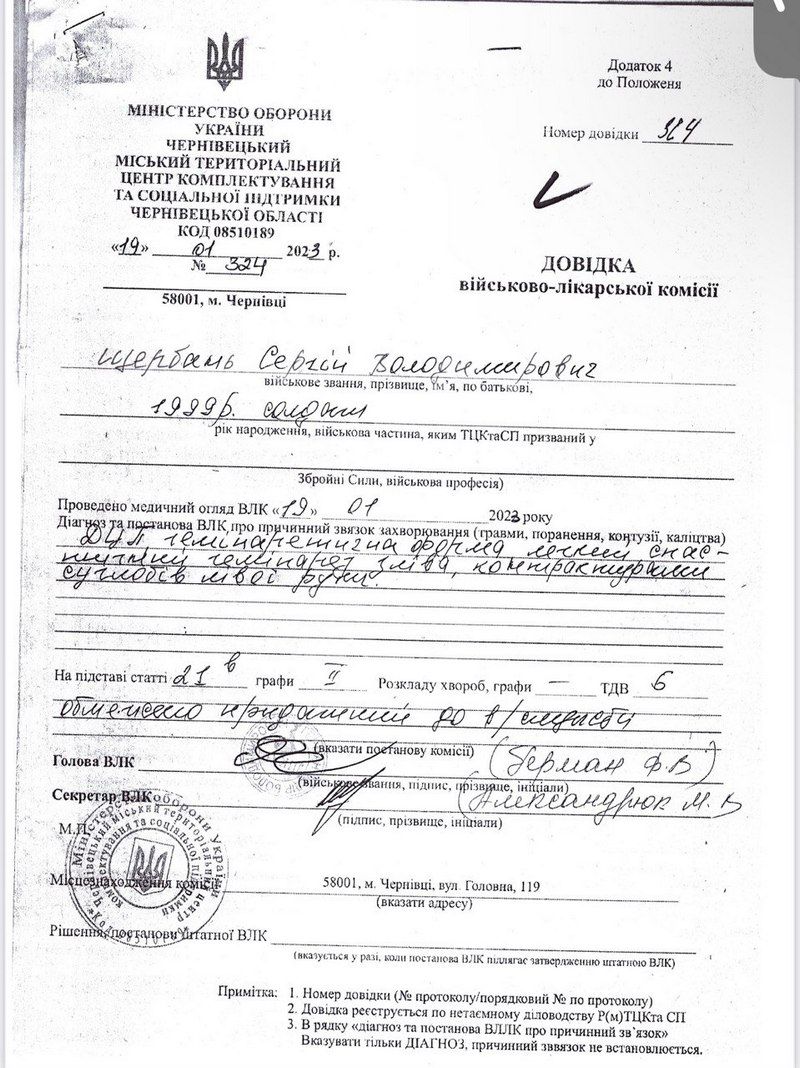 Додаток 4
до Положеня
МІНІСТЕРСТВО ОБОРОНИ
УКРАЇНИ
ЧЕРНІВЕЦЬКИЙ
МІСЬКИЙ ТЕРИТОРІАЛЬНИЙ
ЦЕНТР КОМПЛЕКТУВАННЯ
ТА СОЦІАЛЬНОЇ ПІДТРИМКИ
ЧЕРНІВЕЦЬКОЇ ОБЛАСТІ
КОД 08510189
«19» 01 2023 р.
№ 324
58001, м. Чернівці
Номер довідки 324
ДОВІДКА
військово-лікарської комісії
Щербань Сергій Володимирович
військове звання, прізвище, ім’я, по батькові,
1999р. солдат
рік народження, військова частина, яким ТЦКтаСП призваний у
Збройні Сили, військова професія)
Проведено медичний огляд ВЛК «19» 01 2023 року
Діагноз та постанова ВЛК про причинний звязок захворювання (травми, поранення, контузії, каліцтва)
ДЦП геміпаретична форма, легкий спас-
тичний геміпарез зліва, контрактурами
суглобів лівої руки.
На підставі статті 21 в графи II Розкладу хвороб, графи — ТДВ 6
обмежено придатний до в/служби
(вказати постанову комісії)
Голова ВЛК (Герман Ф.В)
(військове звання, підпис, прізвище, ініціали)
Секретар ВЛК (Александрюк М.В
(підпис, прізвище, ініціали)
М.П.
Міністерство оборони України
Чернівецький міський територіальний центр
комплектування та соціальної підтримки
Місцезнаходження комісії 58001, м. Чернівці, вул. Головна, 119
(вказати адресу)
Рішення постанови штатної ВЛК
(вказується у разі, коли постанова ВЛК підлягає затвердженню штатною ВЛК)
Примітка: 1. Номер довідки (№ протоколу/порядковий № по протоколу)
2. Довідка реєструється по нетаємному діловодству Р(м)ТЦКта СП
3. В рядку «діагноз та постанова ВЛЛК про причинний зв’язок»
Вказувати тільки ДІАГНОЗ, причинний зввязок не встановлюється.